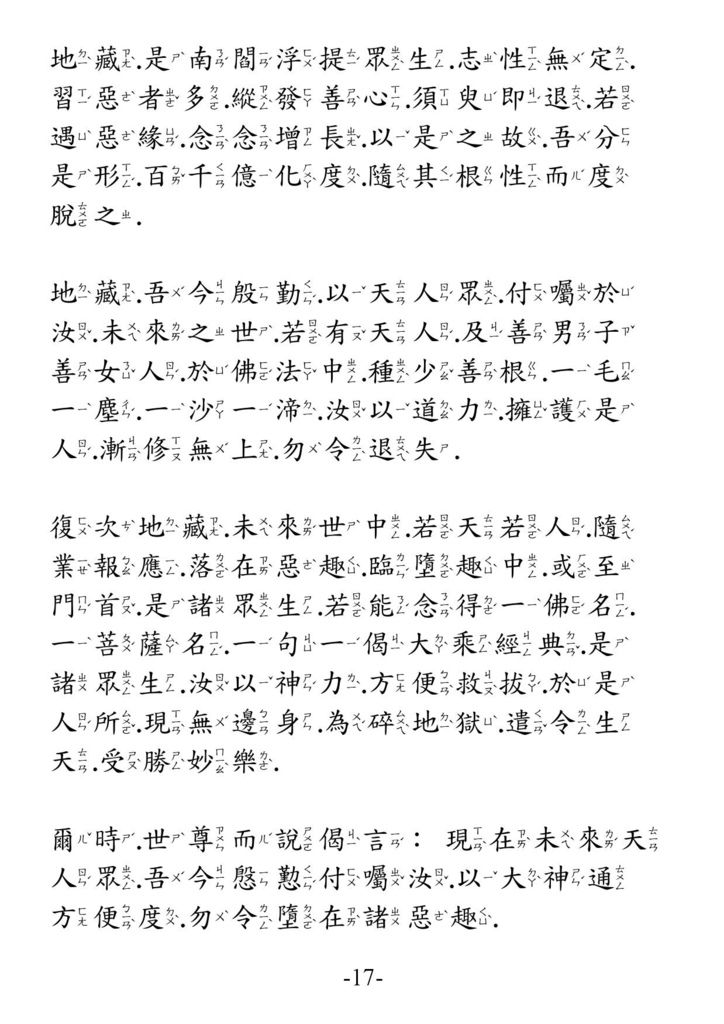 地藏.是南閻浮提眾生.志性無定.
習惡者多.縱發善心.須臾即退.若
遇惡緣.念念增長.以是之故.吾分
是形.百千億化度.隨其根性而度
脫之.
地藏.吾今殷勤.以天人眾.付囑於
汝.未來之世.若有天人.及善男子
善女人.於佛法中.種少善根.一毛
一塵.一沙一渧.汝以道力.擁護是
人.漸修無上.勿令退失.
復次地藏.未來世中.若天若人.隨
業報應.落在惡趣.臨墮趣中.或至
門首.是諸眾生.若能念得一佛名.
一菩薩名.一句一偈大乘經典.是
諸眾生.汝以神力.方便救拔.於是
人所.現無邊身.為碎地獄.遣令生
天.受勝妙樂.
爾時.世尊而說偈言: 現在未來天
人眾.吾今慇懃付囑汝.以大神通
方便度.勿令墮在諸惡趣.
-17-